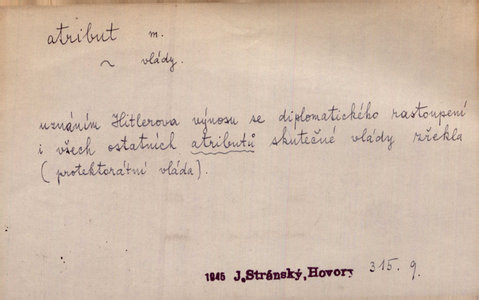 atribut m.
~ vlády.
uznáním Hitlerova výnosu se diplomatického zastoupení
i všech ostatních atributů skutečné vlády zřekla
(protektorátní vláda).
1945 J.Stránský, Hovory 315. 9.